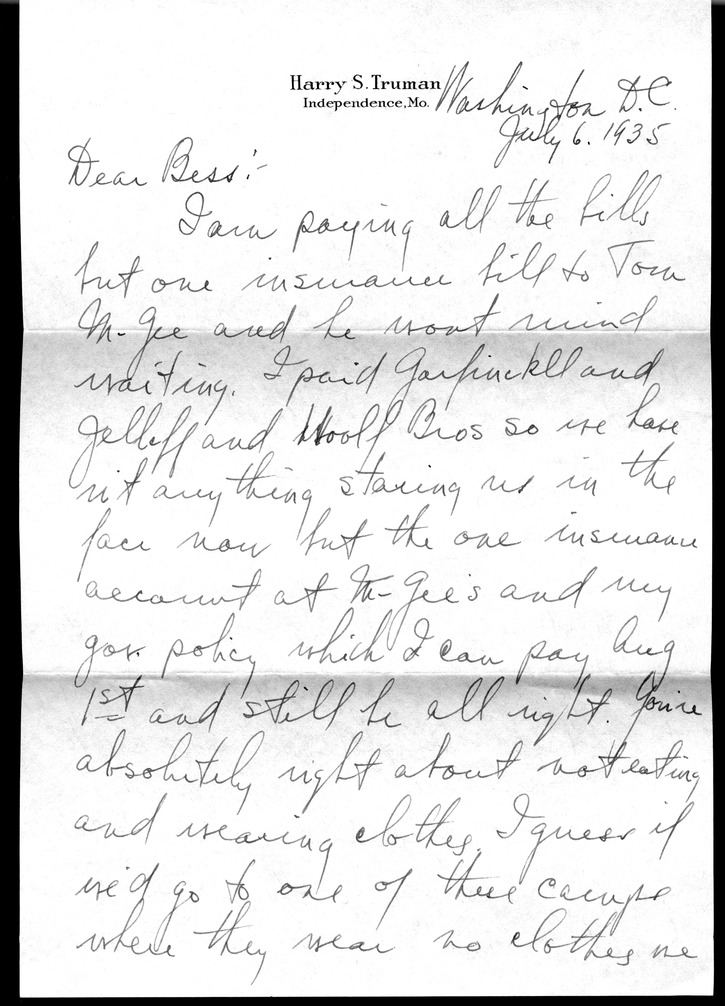 Harry S. Truman
Independence, Mo.
Washington D.C.
July 6, 1935
Dear Bess:-
I am paying all the bills
but one insurance bill to Tom
McGee and he wont mind
waiting. I paid Garfinckell and
Jelleff and Woolf Bros so we have
n't anything staring us in the
face now but the one insurance
account at McGee's and my
gov. policy which I can pay Aug
1st and still be all right. You're
absolutely right about not eating
and wearing clothes. I guess if
we'd go to one of these camps
where they wear no clothes we